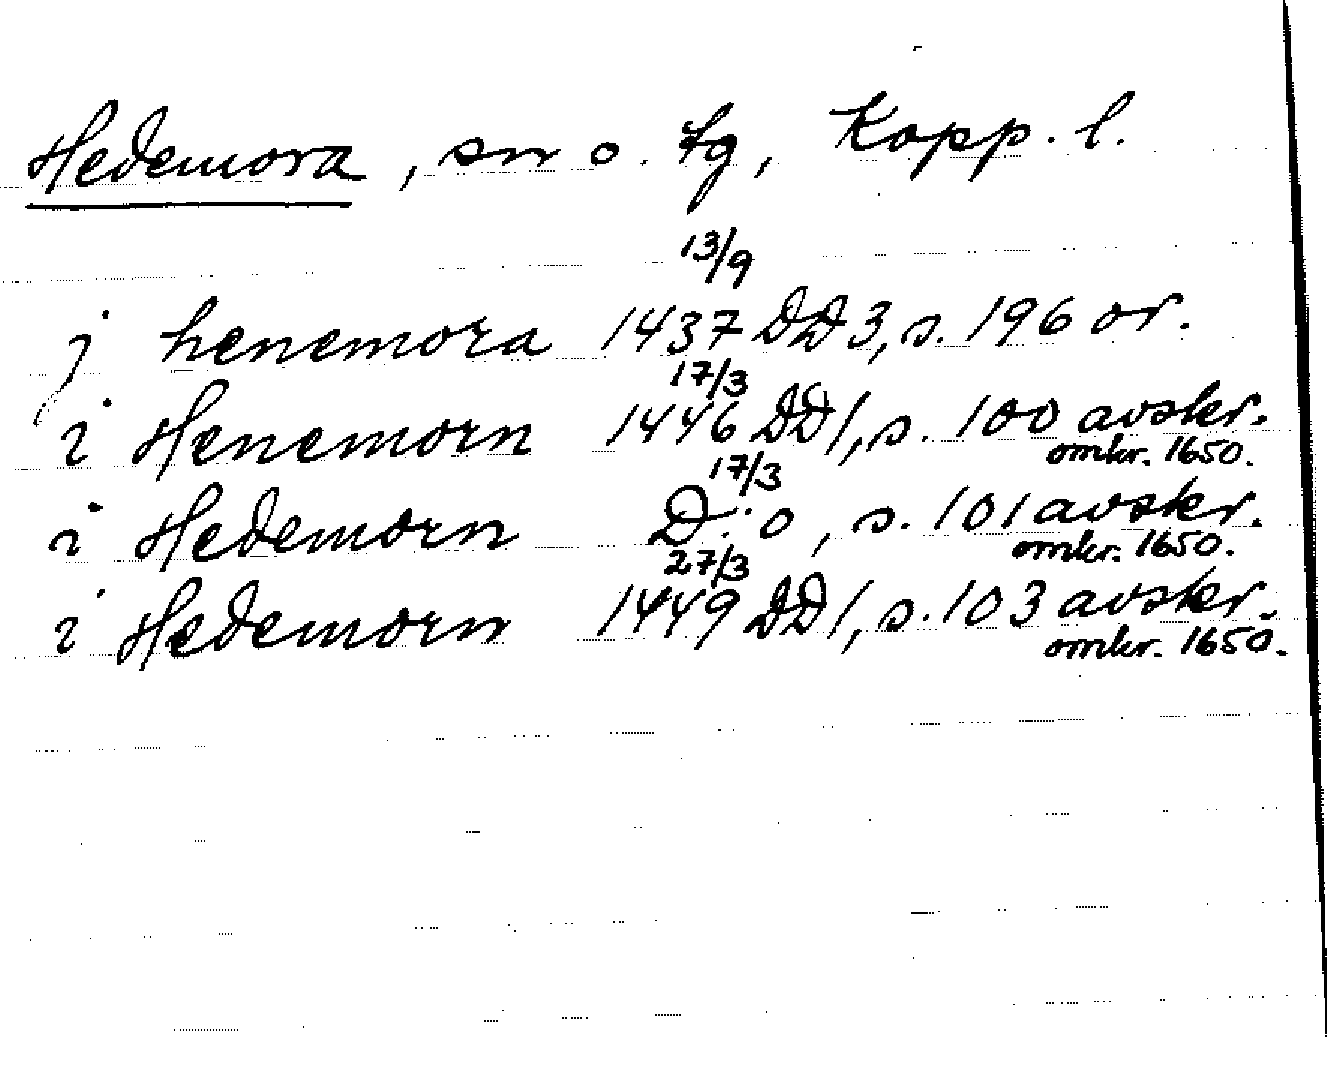 Hedemora, sn o. tg, Kopp. l.
13/9
j henemora 1437 DD 3, s. 196 or.
17/3
i Henemorn 1446 DD 1, s. 100 avskr.
omkr. 1650.
17/3
i Hedemorn D:o, s. 101 avskr.
omkr. 1650.
27/3
i Hedemorn 1449 DD 1, s. 103 avskr.
omkr. 1650.